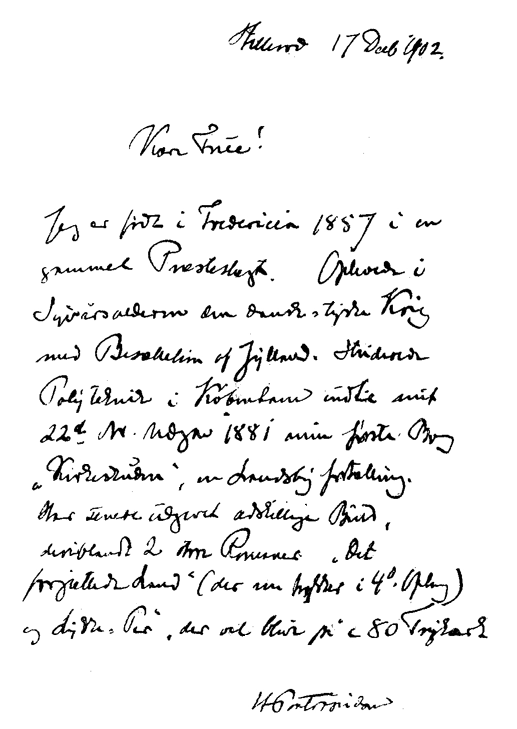 Hillerød 17 Decb 1902.
Kære Frue!
Jeg er født i Fredericia 1857 i en
gammel Præsteslægt. Oplevede i
Syvårsalderen den dansk-tyske Krig
med Besættelsen af Jylland. Studerede
Polyteknik i København indtil mit
22d År. Udgav 1881 min første Bog
„Kirkeskuden“, en Landsbyfortælling.
Har senere udgivet adskillige Bind,
deriblandt 2 store Romaner „Det
forjættede Land“ (der nu trykkes i 4d. Oplag)
og Lykke-Per, der vel bliver på c 80 Trykark
H Pontoppidan